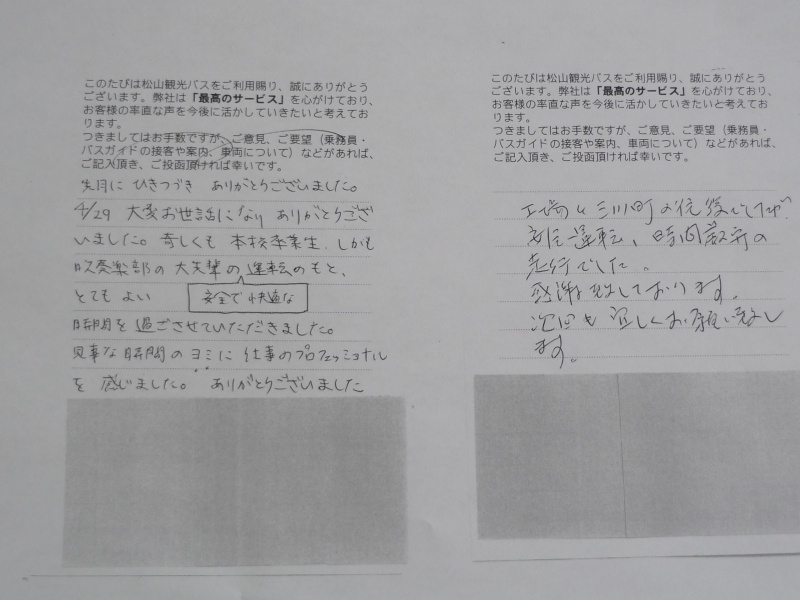 このたびは松山観光バスをご利用賜り、誠にありがとう
ございます。弊社は「最高のサービス」を心がけており、
お客様の率直な声を今後に活かしていきたいと考えてお
ります。
つきましてはお手数ですが、ご意見、ご要望（乗務員・
バスガイドの接客や案内、車両について）などがあれば、
ご記入頂き、ご投函頂ければ幸いです。
先月に ひきつづき ありがとうございました。
4/29 大変お世話になり ありがとうござ
いました。奇しくも 本校卒業生 しかも
吹奏楽部の大先輩の運転のもと、
とてもよい 安全で快適な
時間を過ごさせていただきました。
見事な時間のヨミに仕事のプロフェッショナル
を感じました。 ありがとうございました
このたびは松山観光バスをご利用賜り、誠にありがとう
ございます。弊社は「最高のサービス」を心がけており、
お客様の率直な声を今後に活かしていきたいと考えてお
ります。
つきましてはお手数ですが、ご意見、ご要望（乗務員・
バスガイドの接客や案内、車両について）などがあれば、
ご記入頂き、ご投函頂ければ幸いです。
三川町の往復でしたが、
安全運転、時間厳守の
走行でした。
感謝致しております。
次回も宜しくお願い致し
ます。